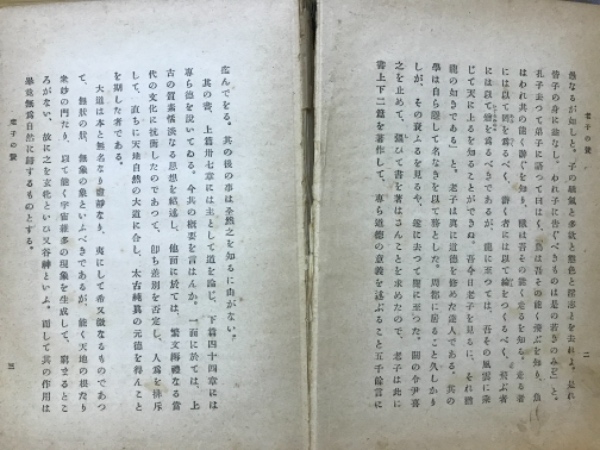 老子の教
二
愚なるが如しと。子の驕氣と多欲と態色と淫志とを去れよ。是れ
皆子の身に益なし。われ子に吿ぐべきものは是の若きのみ』と。
孔子去つて弟子に語つて曰はく、鳥は吾その能く飛ぶを知り、魚
はわれ其の能く游ぐを知り、獸は吾その能く走るを知る。走る者
には以て罔を爲るべく、游ぐ者には以て綸をつくるべく、飛ぶ者
には以て矰を爲るべきであるが、龍に至つては、吾その風雲に乘
じて天に上るを知ることができぬ。吾今日老子を見るに、それ猶
龍の如きである』と。老子は眞に道德を修めた達人である。其の
學は自ら隱して名なきを以て務とした。周都に居ること久しかり
しが、その衰ふるを見るや、遂に去つて關に至つた。關の令尹喜
之を止めて、强ひて書を著はさんことを求めたので、老子は此に
書上下二篇を著作して、專ら道德の意義を述ぶること五千餘言に
及んでをる。其の後の事は全然之を知るに由がない。
其の書、上篇卅七章には主として道を論じ、下篇四十四章には
專ら德を說いてゐる。今其の槪要を言はんか。一面に於ては、上
古の質素恬淡なる思想を紹述し、他面に於ては、繁文縟禮なる當
代の文化に抗衝したのであつて、卽ち差別を否定し、人爲を排斥
して、直ちに天地自然の大道に合し、太古純眞の元德を得んこと
を期した者である。
大道は本と無名なり虛靜なり、夷にして希又微なるものであつ
て、無狀の狀、無象の象といふべきであるが、能く天地の根たり
衆妙の門たり、以て能く宇宙種多の現象を生成して、窮まるとこ
ろがない。故に之を玄牝といひ又谷神といふ。而して其の作用は
畢竟無爲自然に歸するものとする。
老子の敎
三